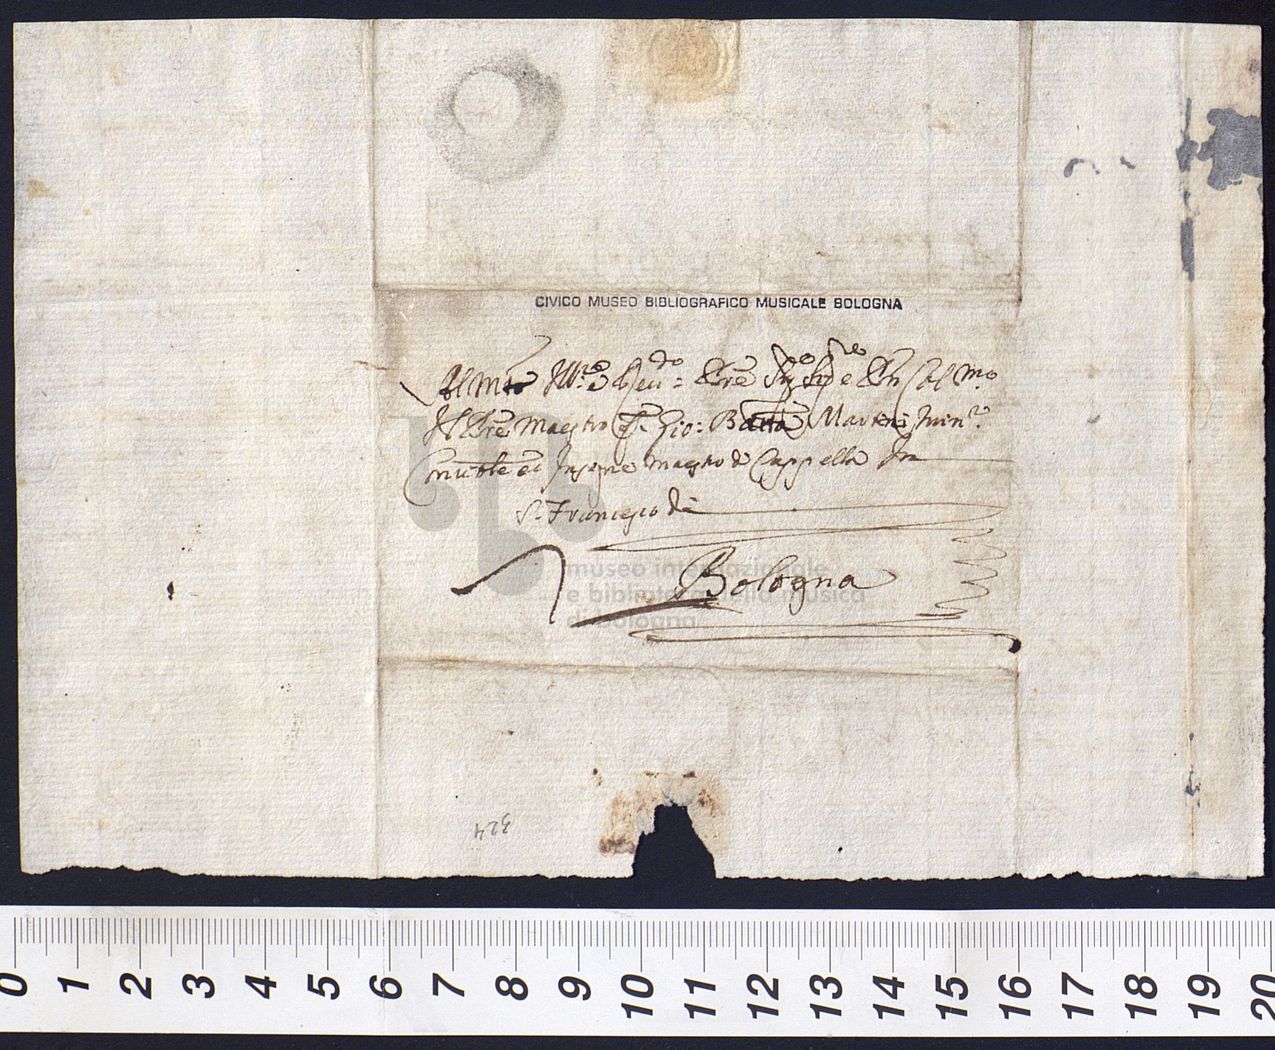 CIVICO MUSEO BIBLIOGRAFICO MUSICALE BOLOGNA
Al Mto Illre e Reudo Pre Sigre e Pn Colmo
Il Pre Maestro F. Gio: Batta Martini Minre
Conuble et Insigne Maestro di Cappella In
S. Francesco di
Bologna
museo internazionale
e biblioteca della musica
di bologna
324
0 1 2 3 4 5 6 7 8 9 10 11 12 13 14 15 16 17 18 19 20